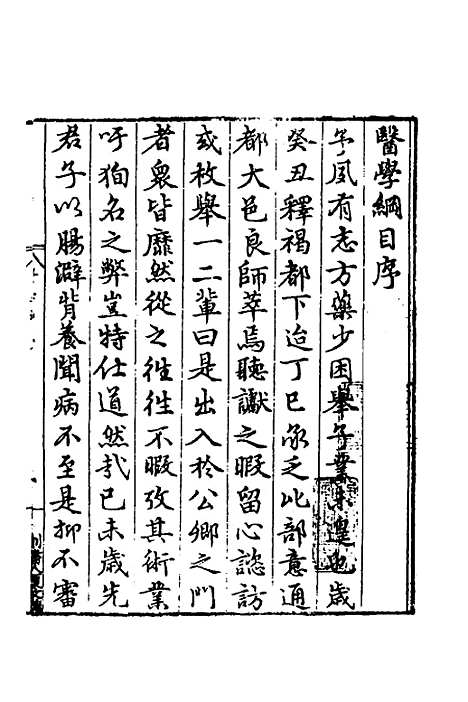 醫學綱目序
予夙有志方藥少困舉子業未遑也歲
癸丑釋褐都下迨丁巳承乏比部意通
都大邑良師萃焉聽讞之暇留心諮訪
或枚舉一二輩曰是出入於公卿之門
者衆皆靡然從之徃徃不暇攷其術業
吁狥名之弊豈特仕道然哉已未歲先
君子以腸澼背養聞病不至是抑不審